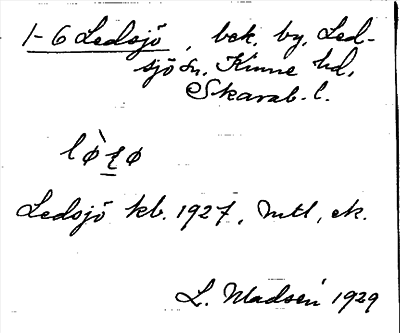 1-6 Ledsjö, bek. by, Led-
sjö sn. Kinne hd,
Skarab. l.
Ledsjö kb. 1927, mtl, ek.
L. Madsén 1929